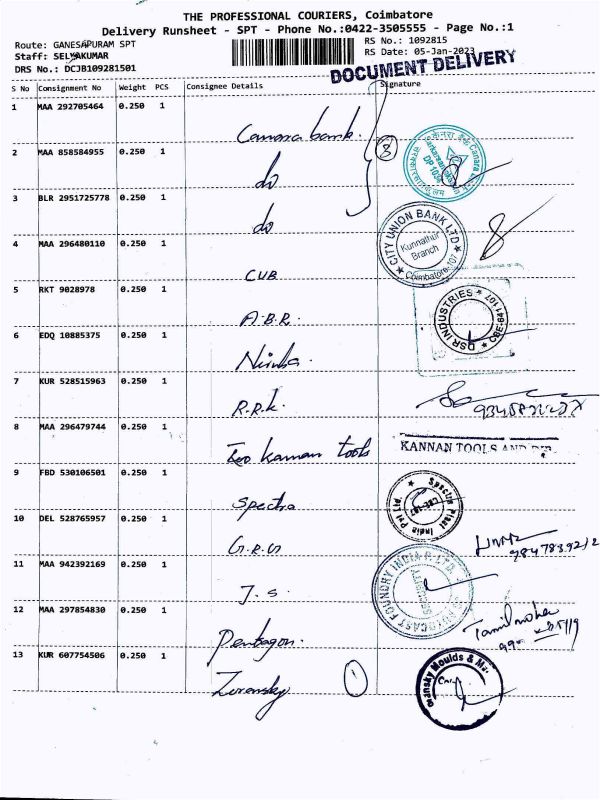 THE PROFESSIONAL COURIERS, Coimbatore
Delivery Runsheet - SPT - Phone No.:0422-3505555 - Page No.:1
Route: GANESAPURAM SPT
RS No.: 1092815
Staff: SELVAKUMAR
RS Date: 05-Jan-2023
DRS No.: DCJB109281501
DOCUMENT DELIVERY
S No Consignment No Weight PCS Consignee Details Signature
1 MAA 292705464 0.250 1
Canara bank.
2 MAA 858584955 0.250 1
do
3 BLR 2951725778 0.250 1
do
3
Canara
DP 1034
CITY UNION BANK LTD
Kunnathur
Branch
Coimbatore-107
4 MAA 296480110 0.250 1
CUB
5 RKT 9028978 0.250 1
A.B.R.
DSR INDUSTRIES * CBE-641107
6 EDQ 10885375 0.250 1
7 KUR 528515963 0.250 1
R.R.K.
8 MAA 296479744 0.250 1
kannan tools
KANNAN TOOLS AND
9 FBD 530106501 0.250 1
Spectra
Spectra Plast India Pvt Ltd
10 DEL 528765957 0.250 1
G.R.G
11 MAA 942392169 0.250 1
J.S.
CAST FOUNDRY INDIA P. LTD.
SECURITY
12 MAA 297854830 0.250 1
Pentagon.
13 KUR 607754506 0.250 1
Zoransky
1
ransky Moulds &